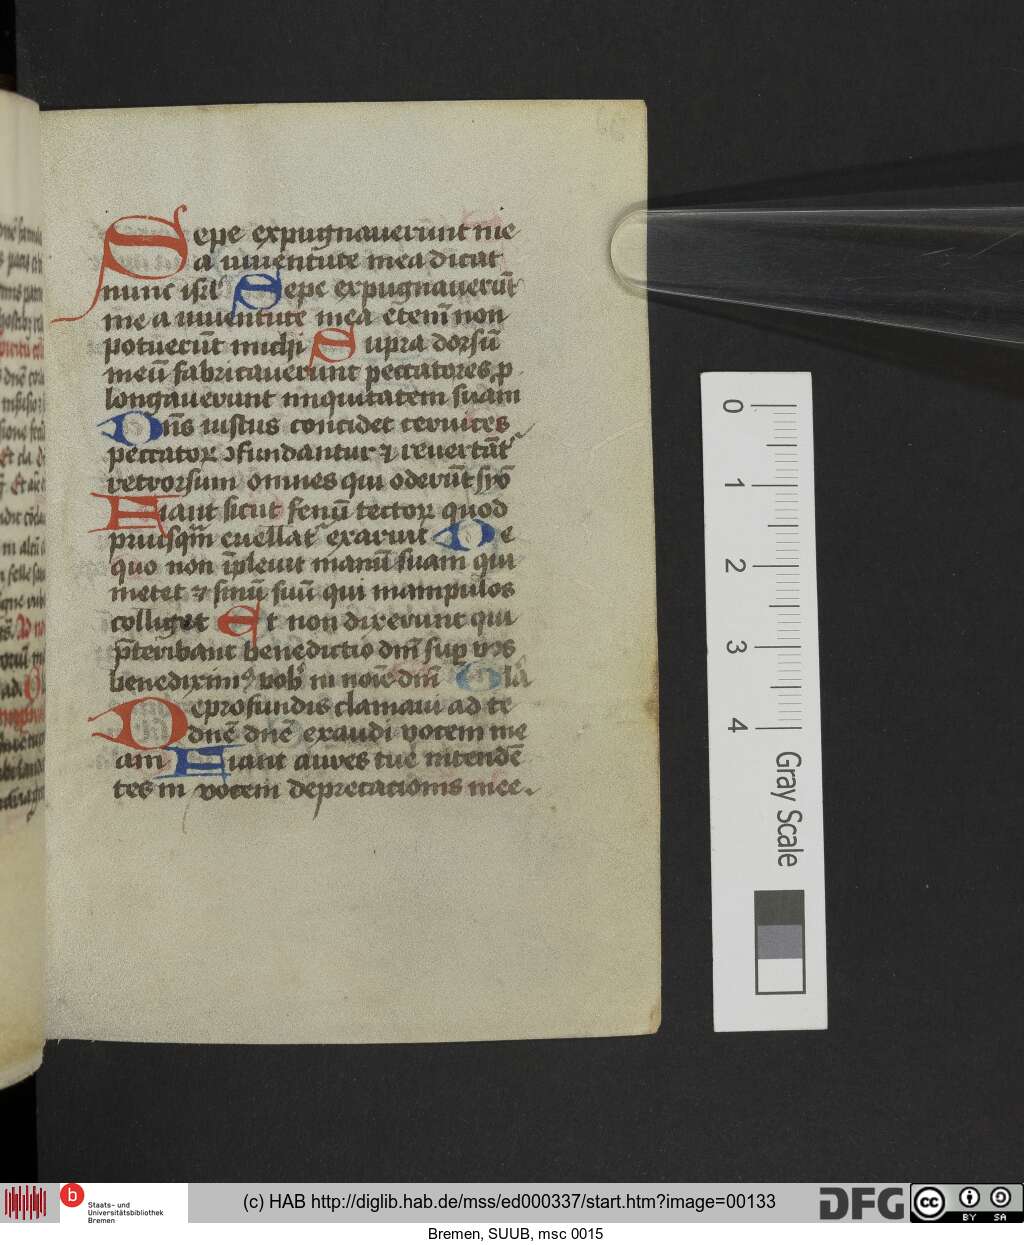 Sepe expugnauerunt me
a iuuentute mea dicat
nunc isrl Sepe expugnauerūt
me a iuuentute mea eteni̅ non
potuerūt michi Supra dorsū
meū fabricauerunt peccatores p
longauerunt iniquitatem suam
Dn̄s iustus concidet ceruices
peccatoꝝ ↄfundantur ⁊ reuertāt᷑
retrorsum omnes qui oderūt syō
Fiant sicut fenū tectoꝝ quod
priusqm̄ euellat᷑ exaruit De
quo non īpleuit manū suam qui
metet ⁊ sinū suū qui manipulos
colliget Et non dixerunt qui
p̄teribant benedictio dn̄i suꝑ vos
benediximꝰ vob᷒ in noīe dn̄i Glā
Deprofundis clamaui ad te
dn̄e dn̄e exaudi vocem me
am Fiant aures tue intendē
tes in vocem deprecationis mee.
0
1
2
3
4
Gray Scale
b
Staats- und
Universitätsbibliothek
Bremen
(c) HAB http://diglib.hab.de/mss/ed000337/start.htm?image=00133
DFG
cc
BY SA
Bremen, SUUB, msc 0015